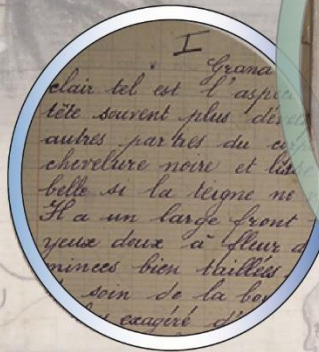 I
Grand
clair tel est l'aspec
tête souvent plus dével
autres parties du corp
chevelure noire et liss
belle si la teigne ne
Il a un large front
yeux doux à fleur d
minces bien taillées
soin de la bou
exagéré d'